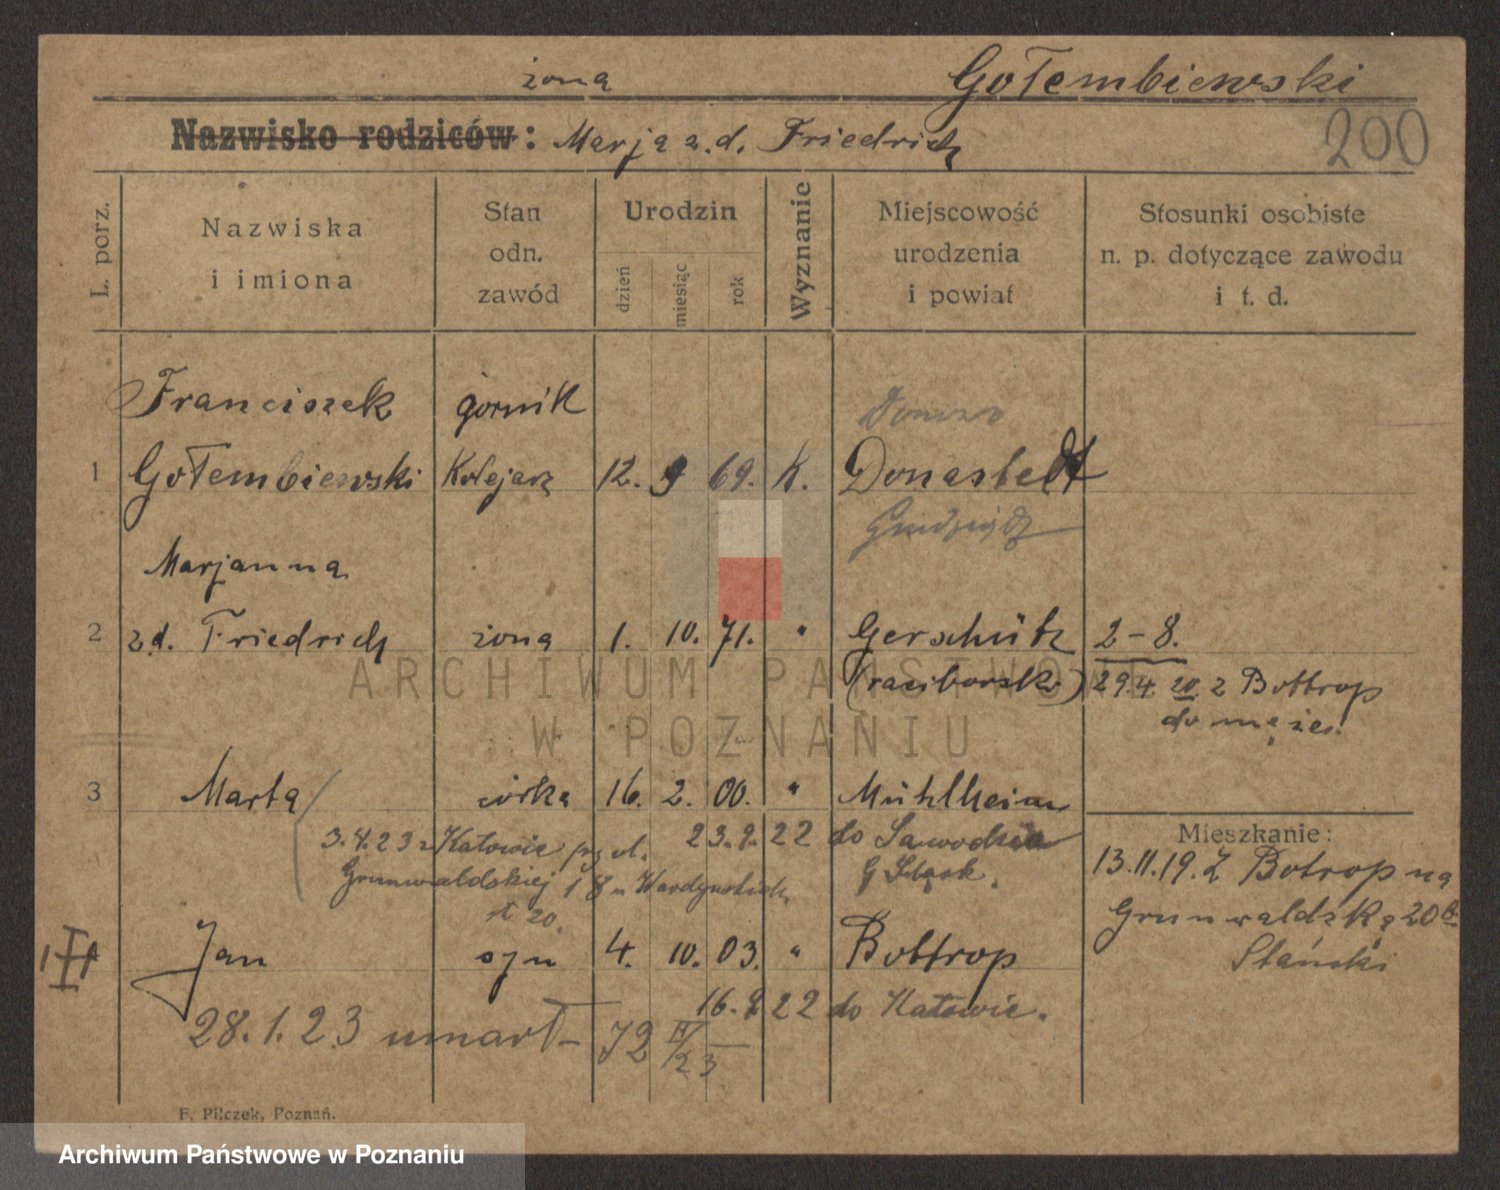 żona Gołembiewski
Nazwisko rodziców: Marja z.d. Friedrich
200
L. porz.
Nazwiska
i imiona
Stan
odn.
zawód
Urodzin
dzień
miesiąc
rok
Wyznanie
Miejscowość
urodzenia
i powiat
Stosunki osobiste
n. p. dotyczące zawodu
i t. d.
Franciszek górnik
1 Gołembiewski Kolejarz 12. 9 69. K. Donastedt
Marjanna
2 z.d. Friedrich żona 1. 10. 71. " Gerschütz 2-8.
(raciborski) 29.4.20. z Bottrop
do męża.
3 Marta córka 16. 2. 00. " Mühlheim
Mieszkanie:
3.4.23 z Katowic ul. 23.9.22 do
Grunwaldskiej 18 u
G Śląsk.
st 20.
13.11.19. Z Botrop na
Grunwaldzką 20
Stański
Jan syn 4. 10. 03. " Bottrop
16.9.22 do Katowic.
28.1.23 umarł - 72 IV/23
F. Pilczek, Poznań.
ARCHIWUM PAŃSTWOWE
W POZNANIU
Archiwum Państwowe w Poznaniu